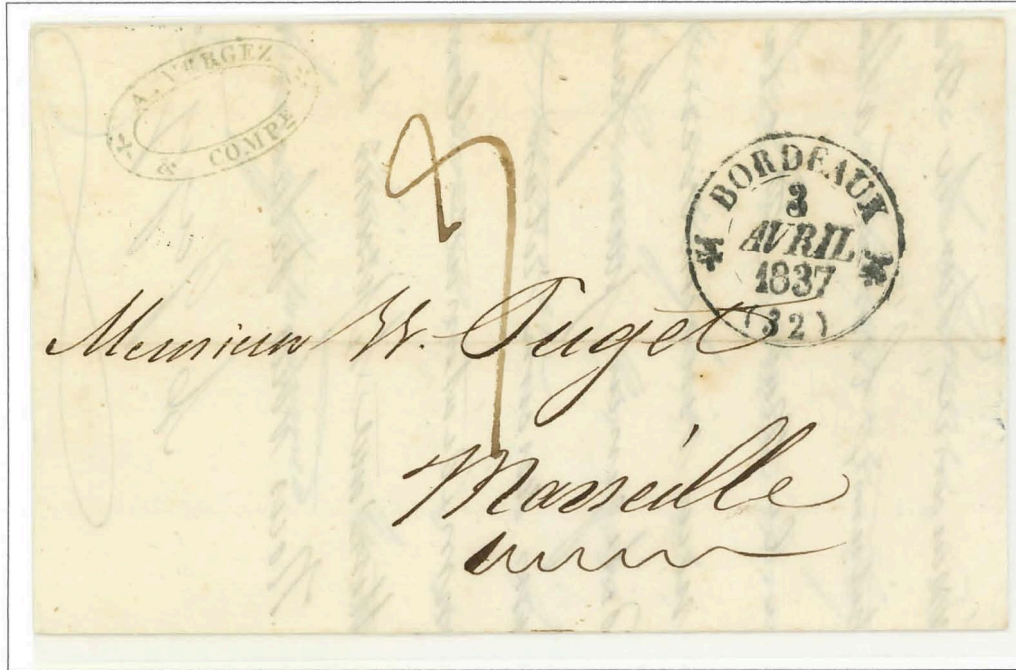 A. VERGEZ
& COMPE
BORDEAUX
3
AVRIL
1837
(32)
Monsieur W. Puget
Marseille